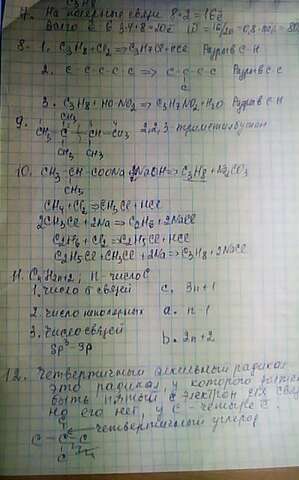 C₃H₈
7. На полярные связи 8·2=16ē
Всего ē в 3·4+8=20ē
8. 1. C₃H₈+Cl₂⟹C₃H₇Cl+HCl Разрыв С-Н
2. C-C-C-C-C ⟹ C-C-C-C Разрыв С-С
C
3. C₃H₈+HO-NO₂⟹C₃H₇NO₂+H₂O Разрыв С-Н
9.
CH₃
CH₃-C-CH-CH₃ 2,2,3-триметилбутан
CH₃ CH₃
10. CH₃-CH-COONa+NaOH⟹C₃H₈+Na₂CO₃
CH₃
CH₄+Cl₂⟹CH₃Cl+HCl
2CH₃Cl+2Na⟹C₂H₆+2NaCl
C₂H₆+Cl₂⟹C₂H₅Cl+HCl
C₂H₅Cl+CH₃Cl+2Na⟹C₃H₈+2NaCl
11. CnH2n+2; n-число С
1. Число σ связей c. 3n+1
2. Число неполярных a. n-1
3. Число связей b. 2n+2
Sp³-Sp
12. Четвертичный алкильный радикал
это радикал, у которого
быть пятый ē электрон для
но его нет, у С - четыре ē.
C четвертичный углерод
C-C-C
C